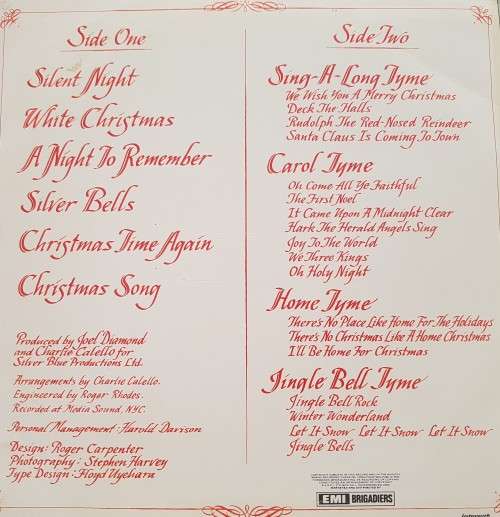 Side One
Silent Night
White Christmas
A Night To Remember
Silver Bells
Christmas Time Again
Christmas Song
Produced by Joel Diamond
and Charlie Calello for
Silver Blue Productions Ltd.
Arrangements by Charlie Calello.
Engineered by Roger Rhodes.
Recorded at Media Sound, NYC.
Personal Management: Harold Davison
Design: Roger Carpenter
Photography: Stephen Harvey
Type Design: Floyd Uyehara
Side Two
Sing-A-Long Tyme
We Wish You A Merry Christmas
Deck The Halls
Rudolph The Red-Nosed Reindeer
Santa Claus Is Coming To Town
Carol Tyme
Oh Come All Ye Faithful
The First Noel
It Came Upon A Midnight Clear
Hark The Herald Angels Sing
Joy To The World
We Three Kings
Oh Holy Night
Home Tyme
There's No Place Like Home For The Holidays
There's No Christmas Like A Home Christmas
I'll Be Home For Christmas
Jingle Bell Tyme
Jingle Bell Rock
Winter Wonderland
Let It Snow Let It Snow Let It Snow
Jingle Bells
EMI BRIGADIERS